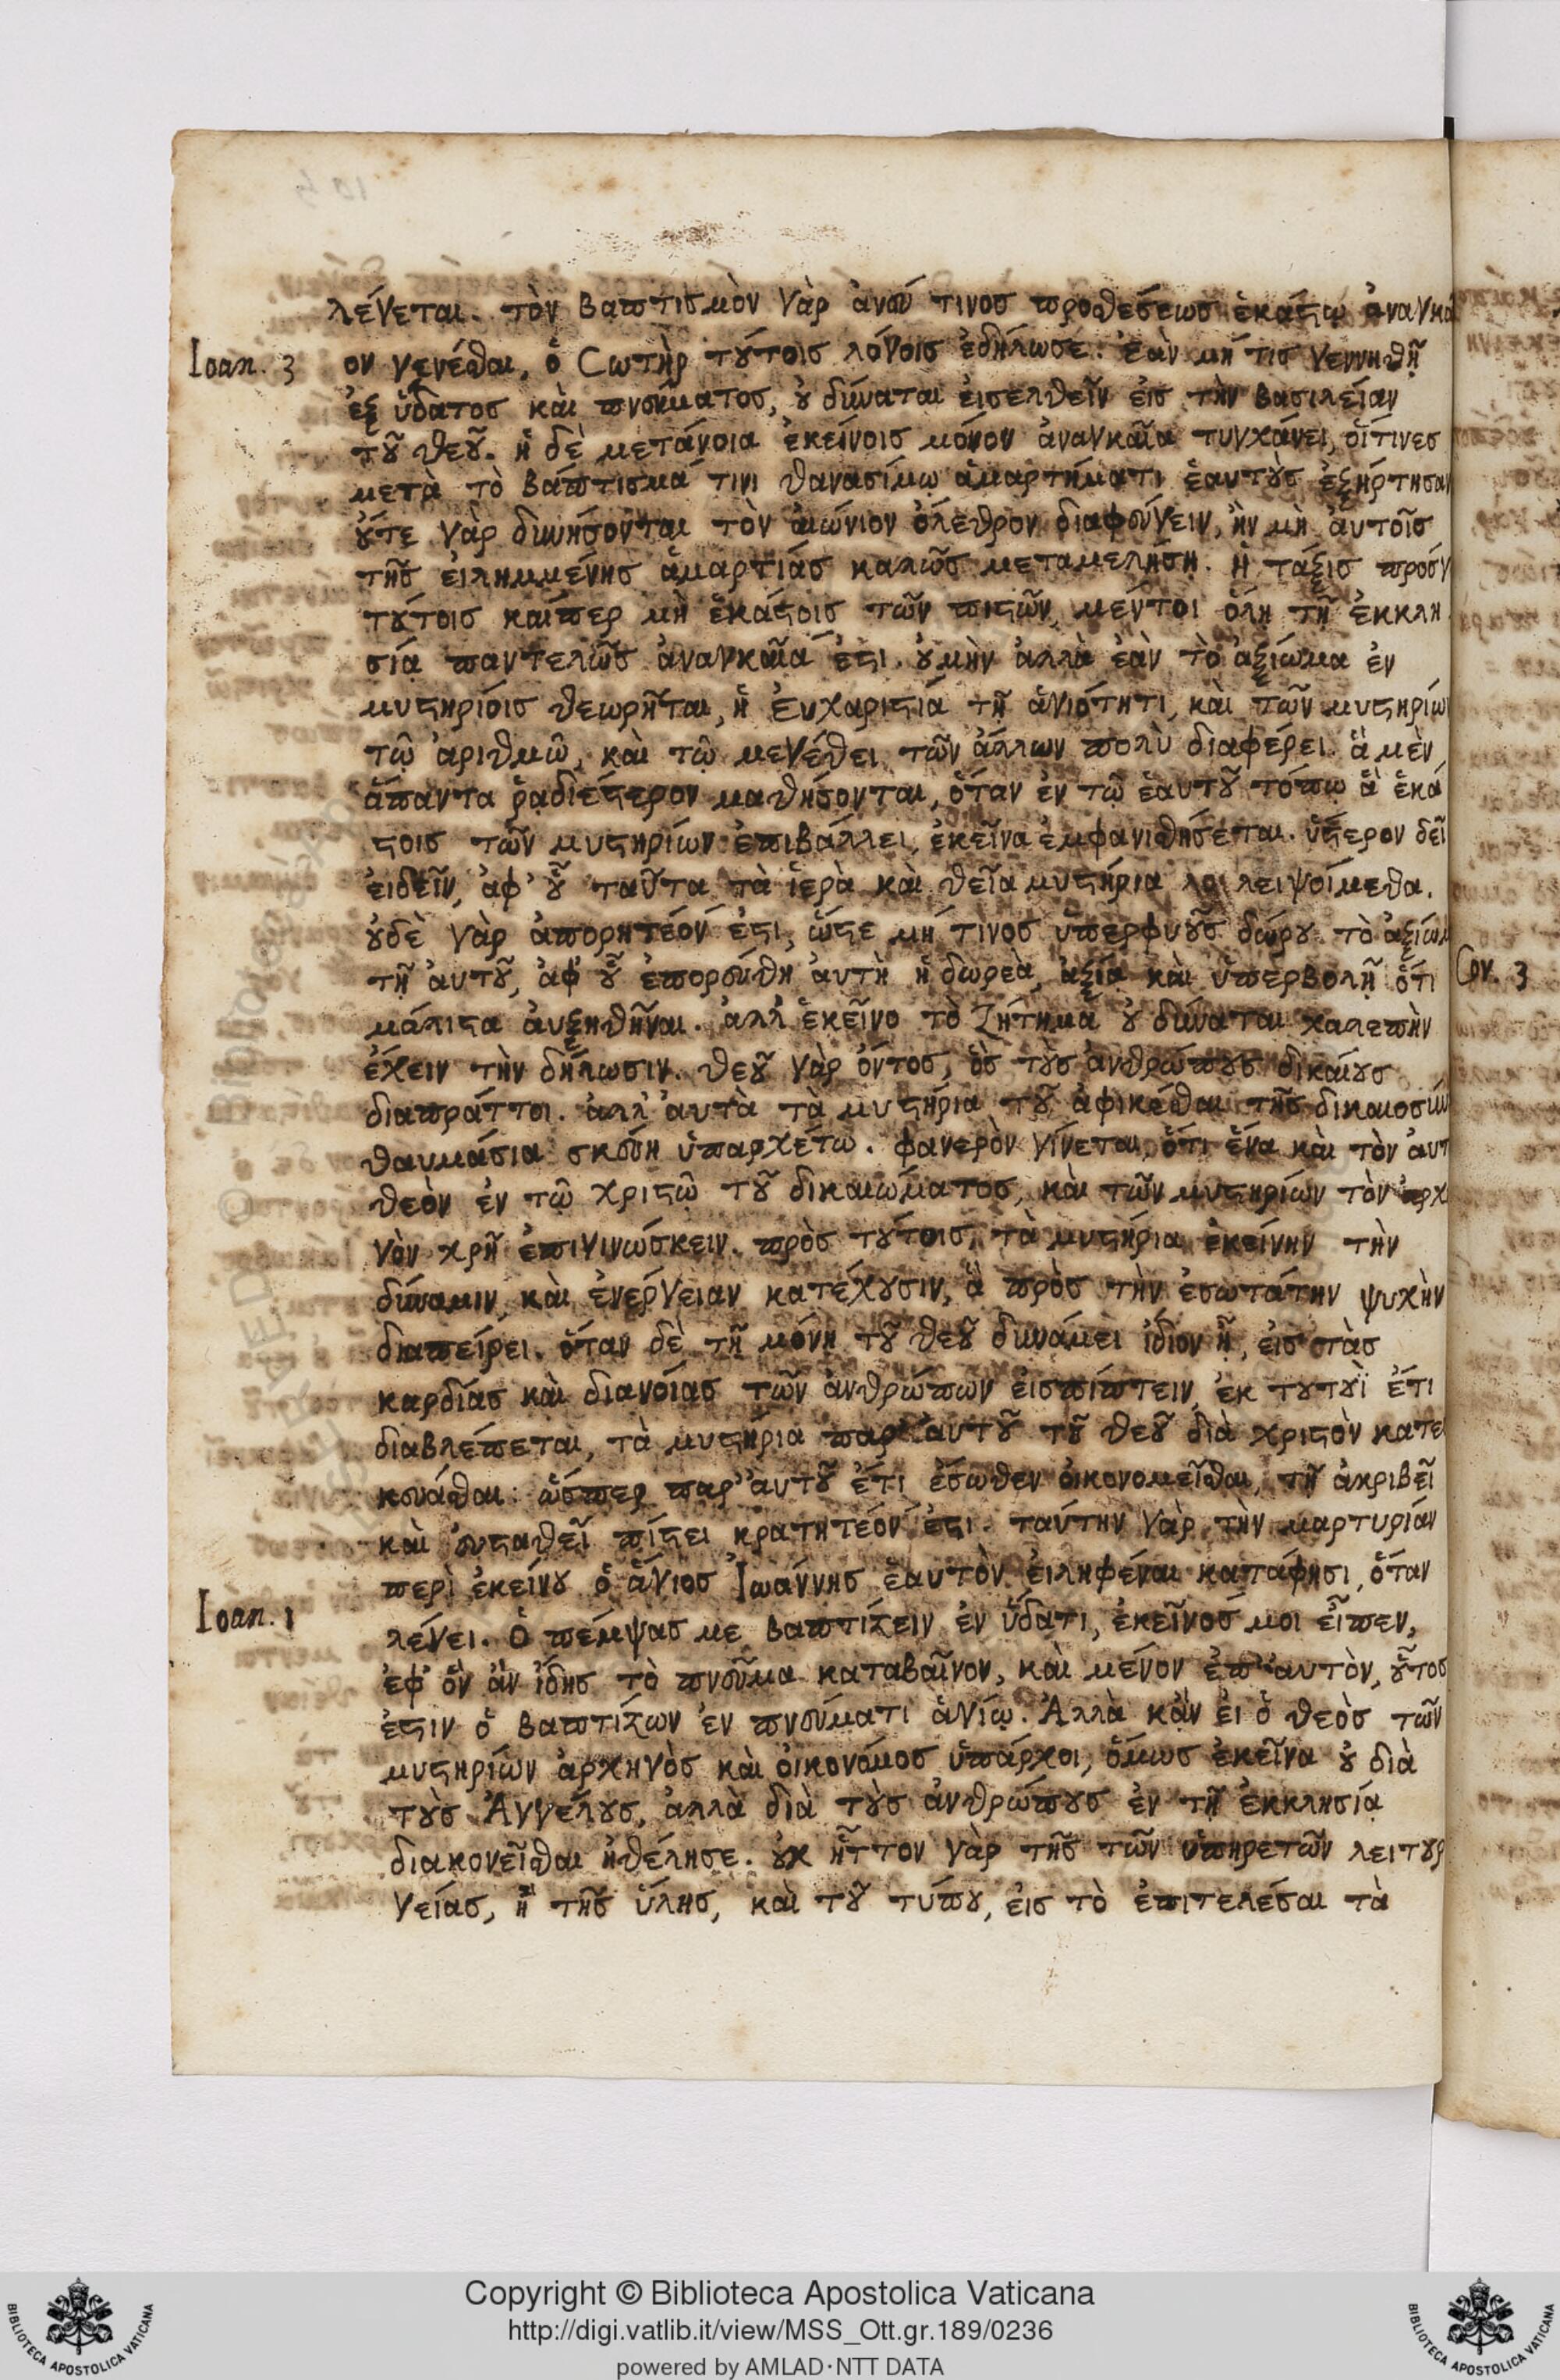 λέγεται. τὸν βαπτισμὸν γὰρ ἄνευ τινος προθέσεως ἑκάστῳ ἀναγκαῖ
Ioan. 3 ον γενέσθαι, ὁ Σωτὴρ τούτοις λόγοις ἐδήλωσε. ἐὰν μή τις γεννηθῇ
ἐξ ὕδατος καὶ πνεύματος, οὐ δύναται εἰσελθεῖν εἰς τὴν βασιλείαν
τοῦ θεοῦ. ἡ δὲ μετάνοια ἐκείνοις μόνον ἀναγκαῖα τυγχάνει, οἵτινες
μετὰ τὸ βάπτισμά τινι θανασίμῳ ἁμαρτήματι ἑαυτοὺς ἐξήρτησαν
οὔτε γὰρ δυνήσονται τὸν αἰώνιον ὄλεθρον διαφεύγειν, ἢν μὴ αὐτοῖς
τῆς εἰλημμένης ἁμαρτίας καλῶς μεταμελήσῃ. Ἡ τάξις πρόσγ
τούτοις καίπερ μὴ ἑκάστοις τῶν πιστῶν, μέντοι ὅλῃ τῇ ἐκκλη
σίᾳ παντελῶς ἀναγκαῖά ἐστι. οὐμὴν ἀλλὰ ἐὰν τὸ ἀξίωμα ἐν
μυστηρίοις θεωρῆται, ἡ Εὐχαριστία τῇ ἁγιότητι, καὶ τῶν μυστηρίων
τῷ ἀριθμῷ, καὶ τῷ μεγέθει τῶν ἄλλων πολὺ διαφέρει. ἃ μὲν
ἅπαντα ῥᾳδιέστερον μαθήσονται, ὅταν ἐν τῷ ἑαυτοῦ τόπῳ ἃ ἑκά
στοις τῶν μυστηρίων ἐπιβάλλει, ἐκεῖνα ἐμφανισθήσεται. ὕστερον δεῖ
εἰδεῖν, ἀφ' οὗ ταῦτα τὰ ἱερὰ καὶ θεῖα μυστήρια λοι λειψοίμεθα.
οὐδὲ γὰρ ἀπορητέον ἐστι, ὥστε μή τινος ὑπερφυοῦς δώρου τὸ ἀξίωμ
τῇ αὐτοῦ, ἀφ' οὗ ἐπορεύθη αὐτὴ ἡ δωρεὰ, ἀξίᾳ καὶ ὑπερβολῇ ὅτι
μάλιστα αὐξηθῆναι. ἀλλ' ἐκεῖνο τὸ ζήτημα οὐ δύναται χαλεπὴν
ἔχειν τὴν δήλωσιν. θεοῦ γὰρ ὄντος, ὃς τοὺς ἀνθρώπους δικαίους
διαπράττοι. ἀλλ' αὐτὰ τὰ μυστήρια τοῦ ἀφικέσθαι τῆς δικαιοσύν
θαυμάσια σκεύη ὑπαρχέτω. φανερὸν γίνεται, ὅτι ἕνα καὶ τὸν αὐτ
θεὸν ἐν τῷ χριστῷ τοῦ δικαιώματος, καὶ τῶν μυστηρίων τὸν ἀρχ
γὸν χρῆ ἐπιγινώσκειν. πρὸς τούτοις, τὰ μυστήρια ἐκείνην τὴν
δύναμιν, καὶ ἐνέργειαν κατέχουσιν, ἃ πρὸς τὴν ἐσωτάτην ψυχὴν
διαπείρει. ὅταν δὲ τῇ μόνῃ τοῦ θεοῦ δυνάμει ἴδιον ᾖ, εἰς στὰς
καρδίας καὶ διανοίας τῶν ἀνθρώπων εἰσπίπτειν, ἐκ τουτουὶ ἔτι
διαβλέπεται, τὰ μυστήρια παρ' αὐτοῦ τοῦ θεοῦ διὰ χριστὸν κατε
κευάσθαι: ὥσπερ παρ' αὐτοῦ ἔτι ἔσωθεν οἰκονομεῖσθαι, τῇ ἀκριβεῖ
καὶ εὐσταθεῖ πίστει κρατητέον ἐστι. ταύτην γὰρ τὴν μαρτυρίαν
περὶ ἐκείνου ὁ ἅγιος Ἰωάννης ἑαυτὸν εἰληφέναι κατάφησι, ὅταν
Ioan. 1 λέγει. Ὁ πέμψας με βαπτίζειν ἐν ὕδατι, ἐκεῖνός μοι εἶπεν,
ἐφ' ὃν ἂν ἴδῃς τὸ πνεῦμα καταβαῖνον, καὶ μένον ἐπ' αὐτὸν, οὗτος
ἐστιν ὁ βαπτίζων ἐν πνεύματι ἁγίῳ. Ἀλλὰ κἄν εἰ ὁ θεὸς τῶν
μυστηρίων ἀρχηγὸς καὶ οἰκονόμος ὑπάρχοι, ὅμως ἐκεῖνα οὐ διὰ
τοὺς Ἀγγέλους, ἀλλὰ διὰ τοὺς ἀνθρώπους ἐν τῇ ἐκκλησίᾳ
διακονεῖσθαι ἠθέλησε. οὐχ ἧττον γὰρ τῆς τῶν ὑπηρετῶν λειτουρ
γείας, ἢ τῆς ὕλης, καὶ τοῦ τύπου, εἰς τὸ ἐπιτελέσαι τὰ
Cor. 3
Copyright © Biblioteca Apostolica Vaticana
http://digi.vatlib.it/view/MSS_Ott.gr.189/0236
powered by AMLAD·NTT DATA
BIBLIOTECA APOSTOLICA VATICANA
BIBLIOTECA APOSTOLICA VATICANA